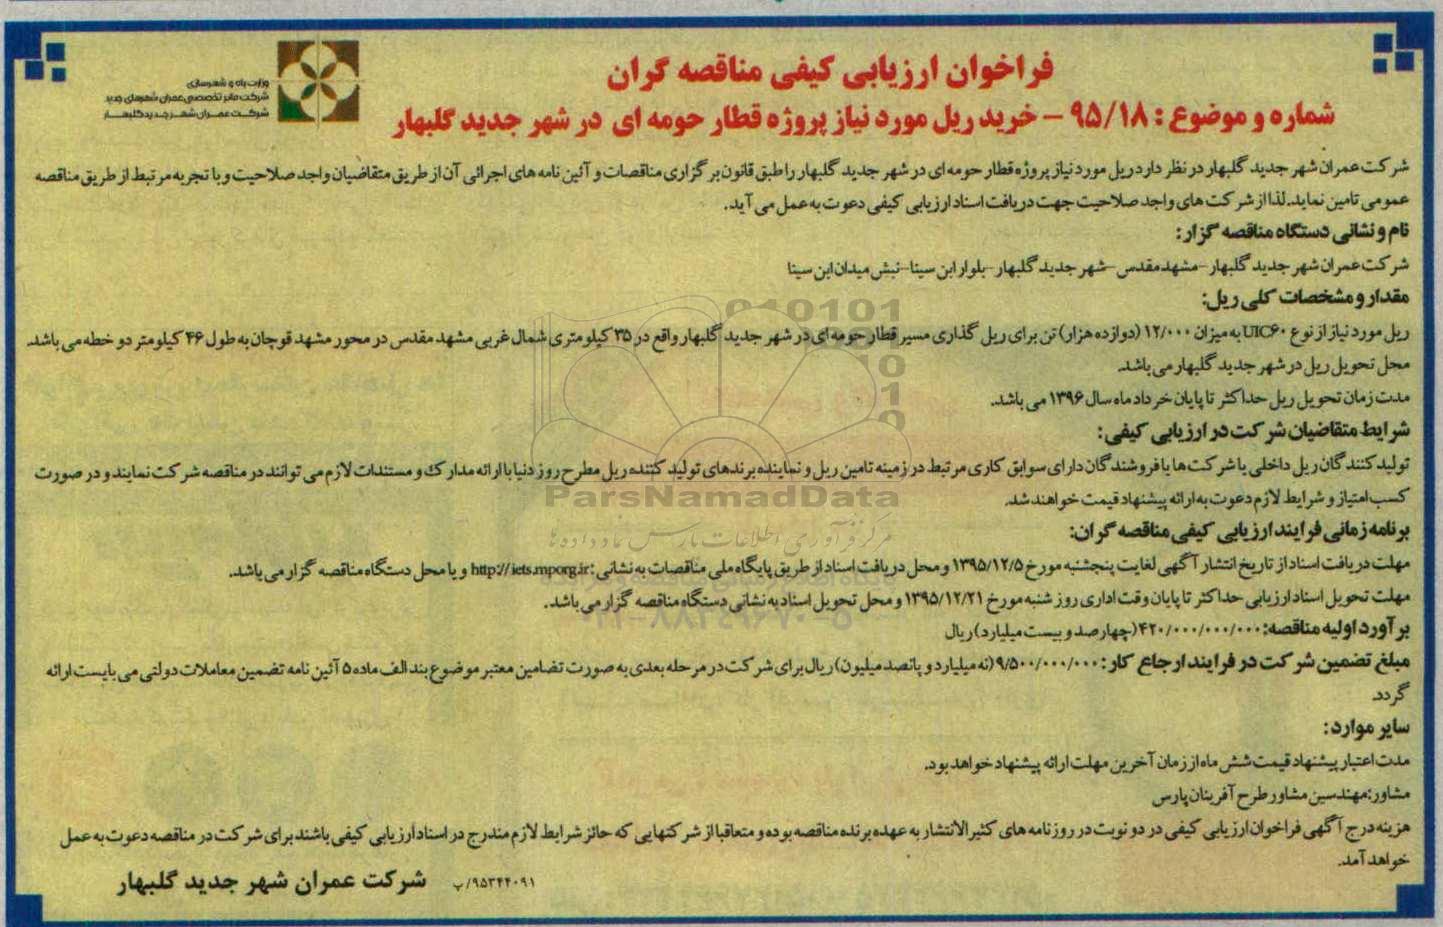 فراخوان ارزیابی کیفی مناقصه گران
شماره و موضوع : ۹۵/۱۸ – خرید ریل مورد نیاز پروژه قطار حومه ای در شهر جدید گلبهار
وزارت راه و شهرسازی
شرکت مادر تخصصی عمران شهرهای جدید
شرکت عمران شهر جدید گلبهار
شرکت عمران شهر جدید گلبهار در نظر دارد ریل مورد نیاز پروژه قطار حومه ای در شهر جدید گلبهار را طبق قانون برگزاری مناقصات و آئین نامه های اجرائی آن از طریق متقاضیان واجد صلاحیت و با تجربه مرتبط از طریق مناقصه
عمومی تامین نماید. لذا از شرکت های واجد صلاحیت جهت دریافت اسناد ارزیابی کیفی دعوت به عمل می آید.
نام و نشانی دستگاه مناقصه گزار:
شرکت عمران شهر جدید گلبهار-مشهد مقدس-شهر جدید گلبهار-بلوار ابن سینا-نبش میدان ابن سینا
مقدار و مشخصات کلی ریل:
ریل مورد نیاز از نوع UIC۶۰ به میزان ۱۲/۰۰۰ (دوازده هزار) تن برای ریل گذاری مسیر قطار حومه ای در شهر جدید گلبهار واقع در ۳۵ کیلومتری شمال غربی مشهد مقدس در محور مشهد قوچان به طول ۴۶ کیلومتر دو خطه می باشد.
محل تحویل ریل در شهر جدید گلبهار می باشد.
مدت زمان تحویل ریل حداکثر تا پایان خرداد ماه سال ۱۳۹۶ می باشد.
شرایط متقاضیان شرکت در ارزیابی کیفی:
تولید کنندگان ریل داخلی یا شرکت ها یا فروشندگان دارای سوابق کاری مرتبط در زمینه تامین ریل و نماینده برندهای تولید کننده ریل مطرح روز دنیا با ارائه مدارک و مستندات لازم می توانند در مناقصه شرکت نمایند و در صورت
کسب امتیاز و شرایط لازم دعوت به ارائه پیشنهاد قیمت خواهند شد.
برنامه زمانی فرایند ارزیابی کیفی مناقصه گران:
مهلت دریافت اسناد از تاریخ انتشار آگهی لغایت پنجشنبه مورخ ۱۳۹۵/۱۲/۵ و محل دریافت اسناد از طریق پایگاه ملی مناقصات به نشانی : http://iets.mporg.ir و یا محل دستگاه مناقصه گزار می باشد.
مهلت تحویل اسناد ارزیابی حداکثر تا پایان وقت اداری روز شنبه مورخ ۱۳۹۵/۱۲/۲۱ و محل تحویل اسناد به نشانی دستگاه مناقصه گزار می باشد.
برآورد اولیه مناقصه: ۴۲۰/۰۰۰/۰۰۰/۰۰۰ (چهارصد و بیست میلیارد) ریال
مبلغ تضمین شرکت در فرایند ارجاع کار: ۹/۵۰۰/۰۰۰/۰۰۰ (نه میلیارد و پانصد میلیون) ریال برای شرکت در مرحله بعدی به صورت تضامین معتبر موضوع بند الف ماده ۵ آئین نامه تضمین معاملات دولتی می بایست ارائه
گردد.
سایر موارد:
مدت اعتبار پیشنهاد قیمت شش ماه از زمان آخرین مهلت ارائه پیشنهاد خواهد بود.
مشاور: مهندسین مشاور طرح آفرینان پارس
هزینه درج آگهی فراخوان ارزیابی کیفی در دو نوبت در روزنامه های کثیرالانتشار به عهده برنده مناقصه بوده و متعاقبا از شرکتهایی که حائز شرایط لازم مندرج در اسناد ارزیابی کیفی باشند برای شرکت در مناقصه دعوت به عمل
خواهد آمد.
۹۵۳۴۴۰۹۱/پ
شرکت عمران شهر جدید گلبهار
ParsNamadData
مرکز فرآوری اطلاعات پارس نماد داده ها
۰۲۱-۸۸۳۴۹۶۷۰-۵